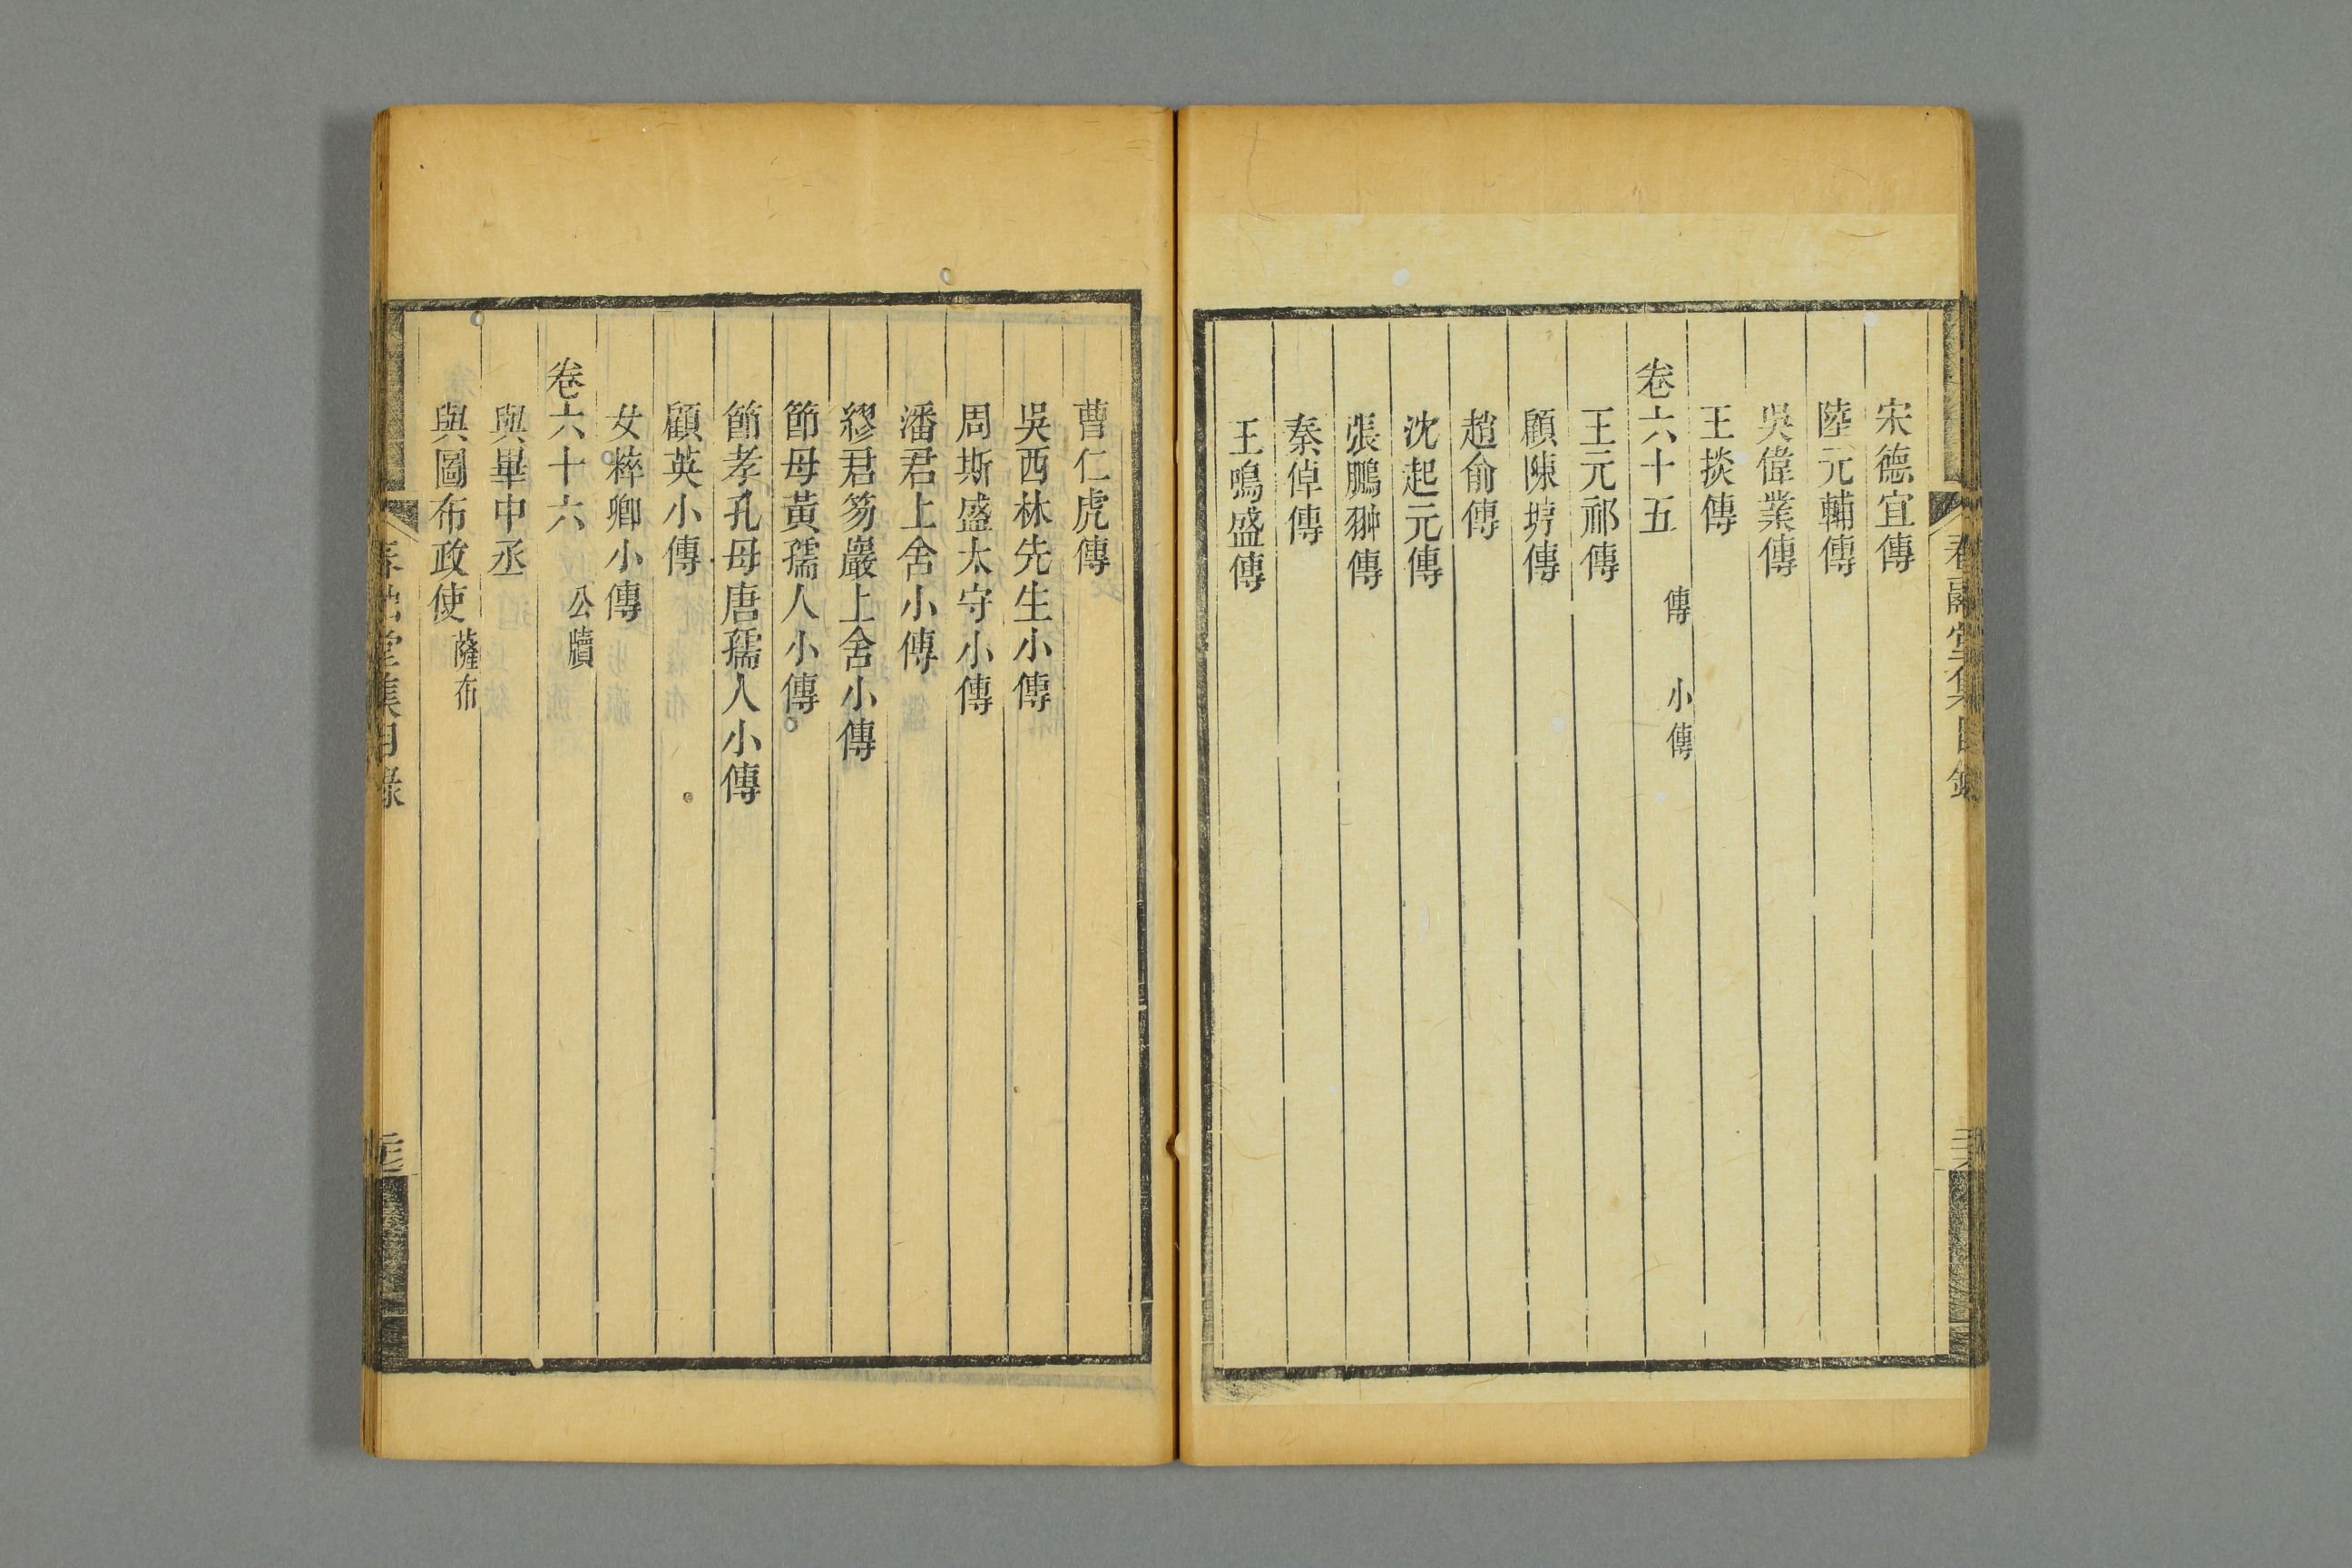 宋德宜傳
陸元輔傳
吳偉業傳
王掞傳
卷六十五 傳 小傳
王元祁傳
顧陳垿傳
趙俞傳
沈起元傳
張鵬翀傳
秦倬傳
王鳴盛傳
曹仁虎傳
吳西林先生小傳
周斯盛太守小傳
潘君上舍小傳
繆君笏巖上舍小傳
節母黃孺人小傳
節孝孔母唐孺人小傳
顧英小傳
女粹卿小傳
卷六十六 公牘
與畢中丞
與圖布政使 薩布
春融堂集目錄